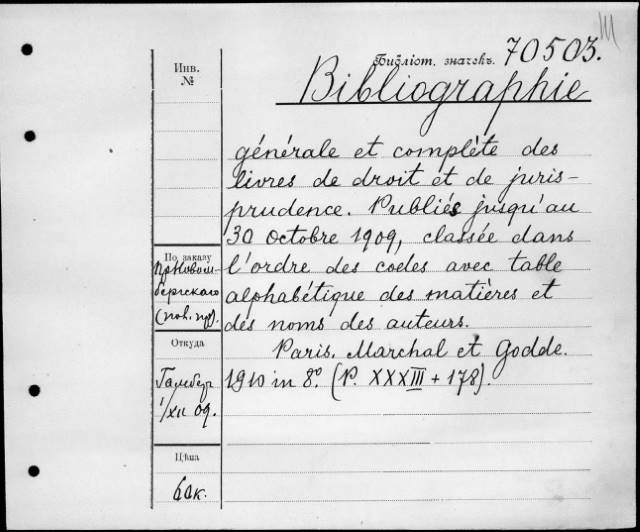 Библіот. значекъ. 70503.
Bibliographie
générale et complète des
livres de droit et de juris-
prudence. Publiés jusqu'au
30 octobre 1909, classée dans
l'ordre des codes avec table
alphabétique des matières et
des noms des auteurs.
Paris. Marchal et Godde.
1910 in 8º. (P. XXXIII + 178).
Инв.
№
По заказу
Откуда
1/XII 09.
Цѣна
60к.